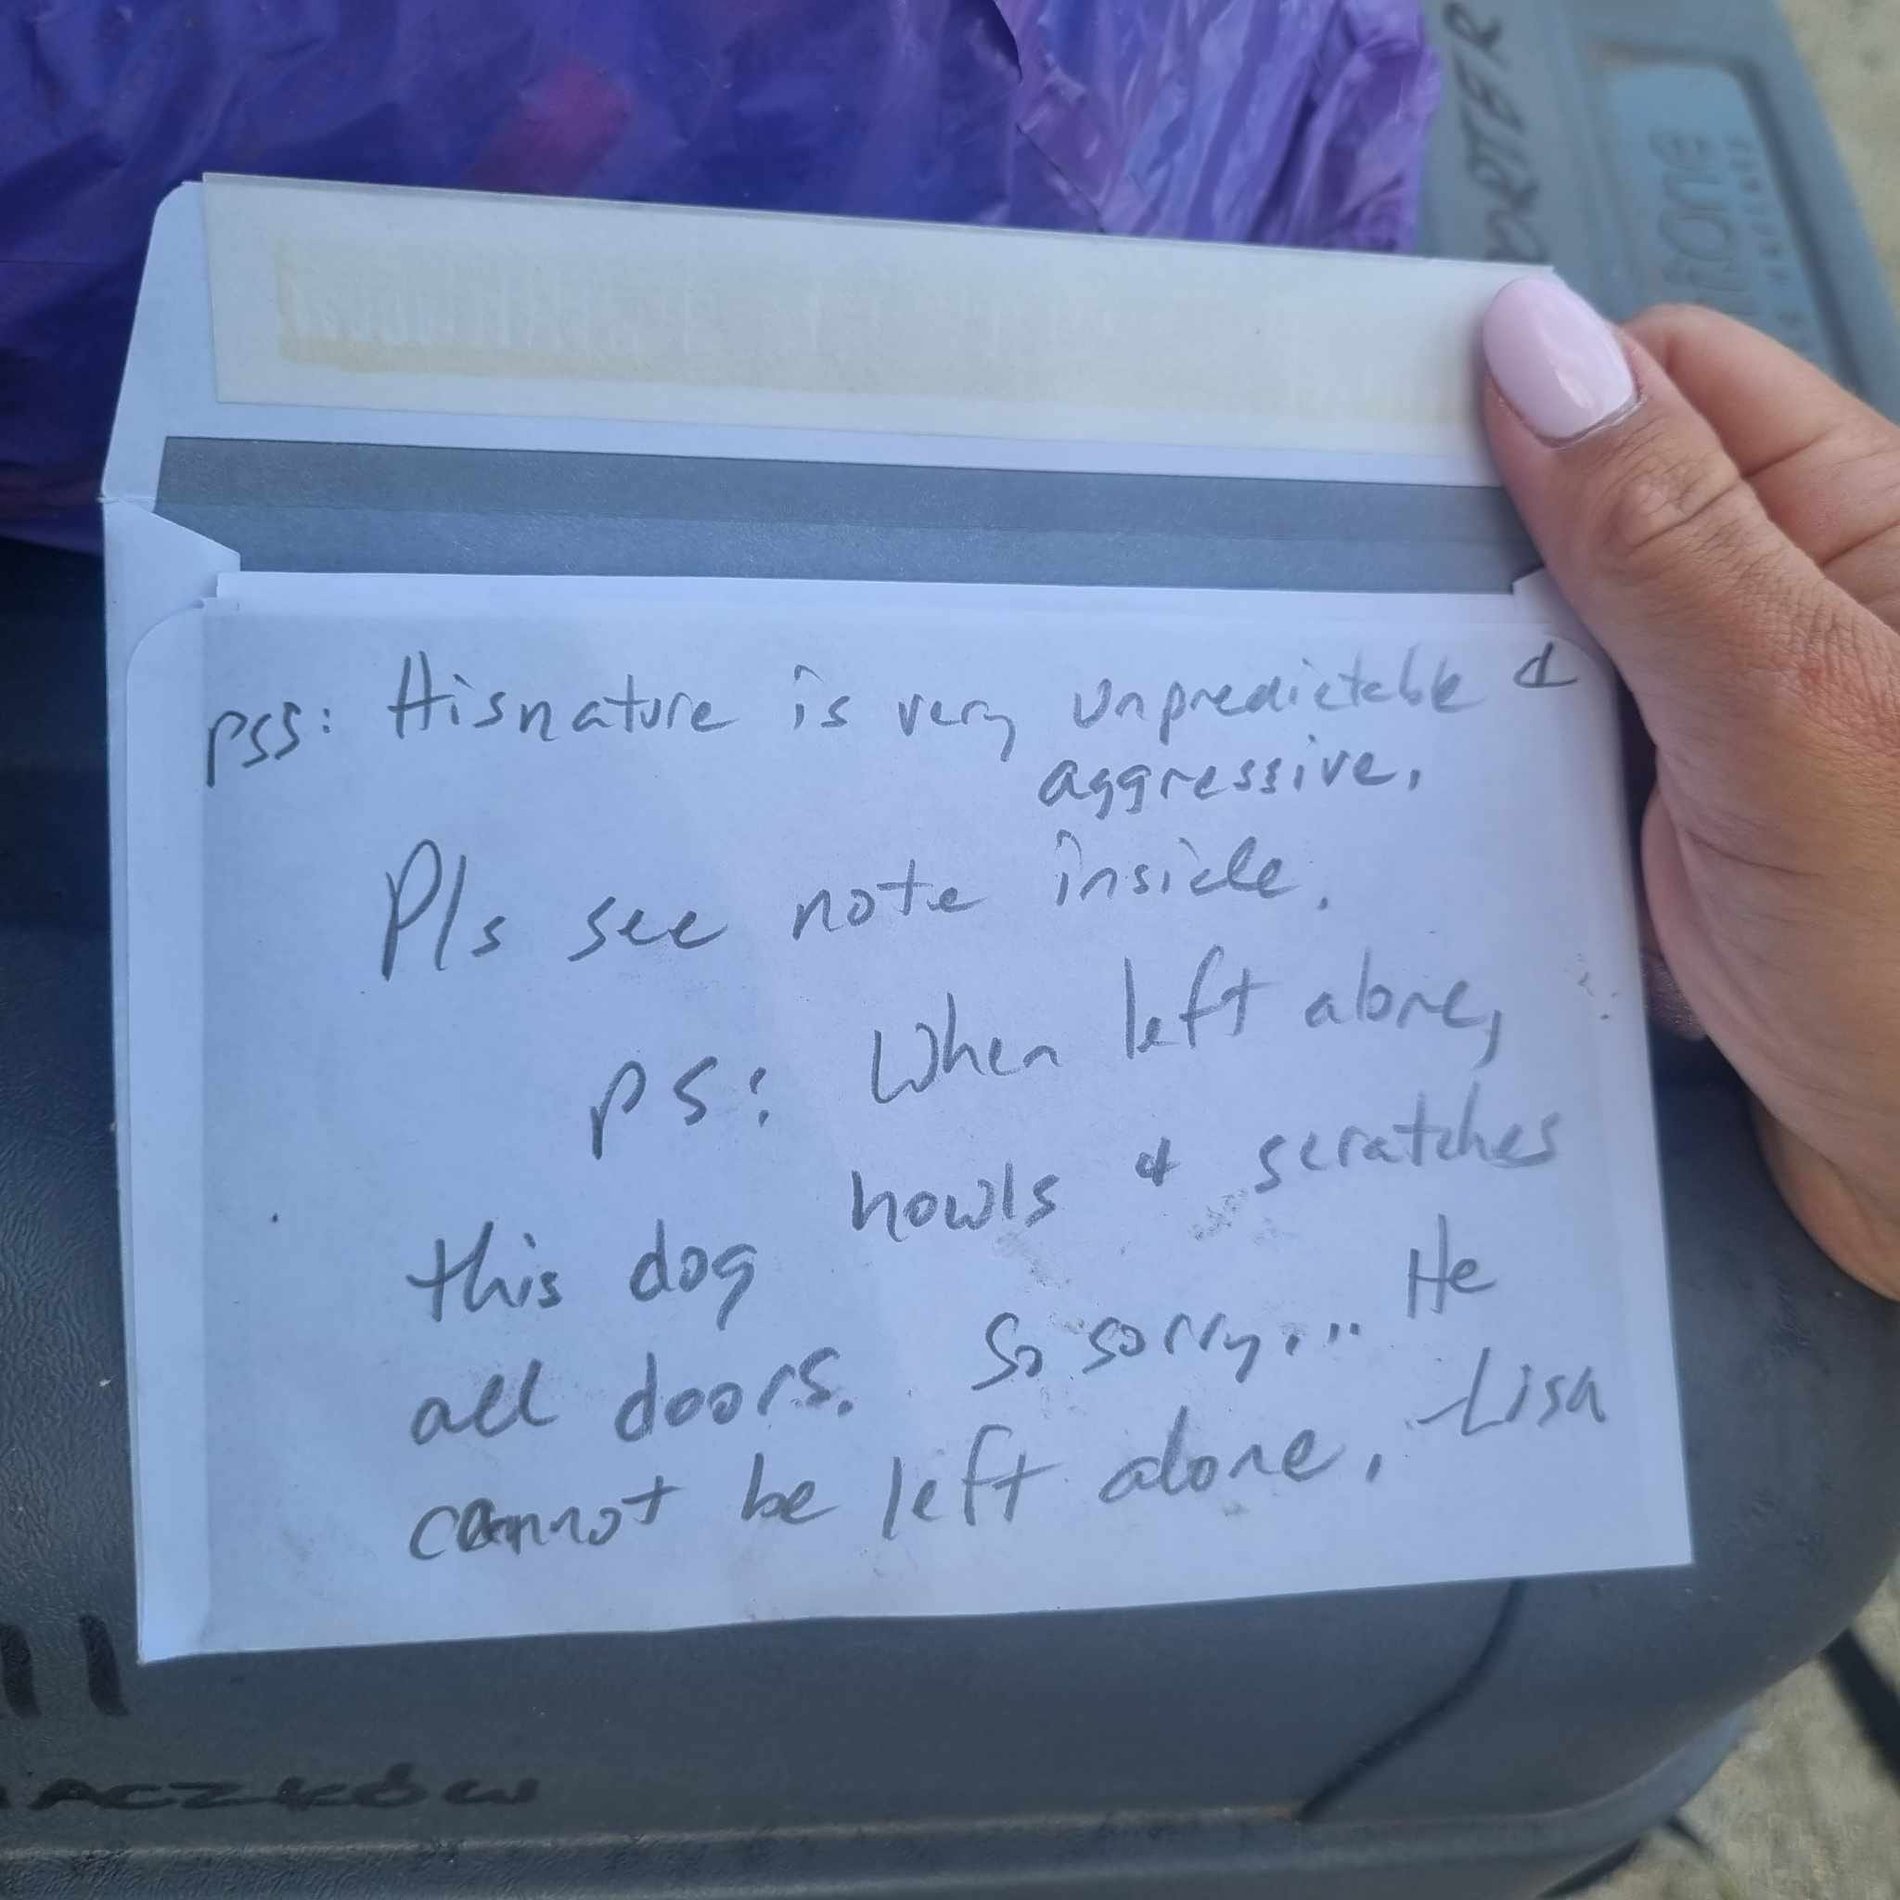 PORTER
pss: Hisnature is very unpredictable &
aggressive.
Pls see note inside.
ps: When left alone,
this dog howls & scratches
all doors. So sorry... He
cannot be left alone. -Lisa